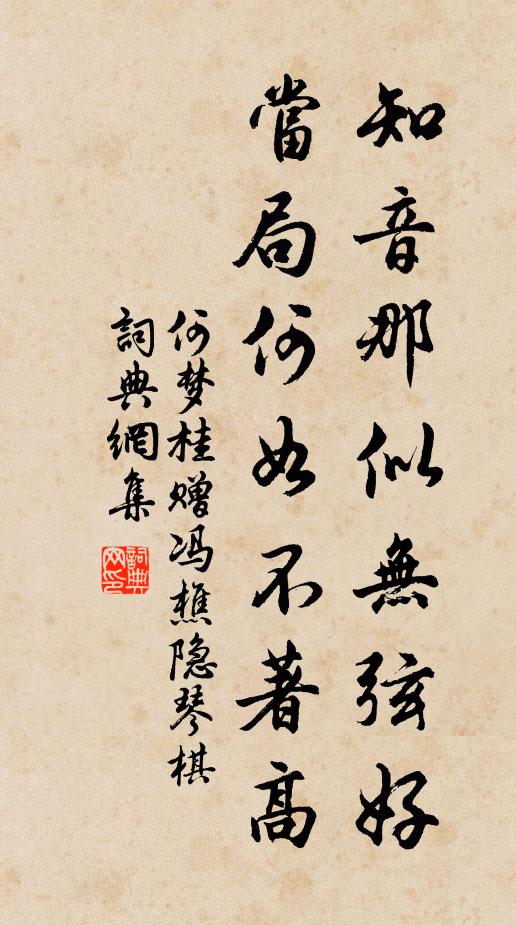 知音那似無弦好
當局何如不著高
何梦桂赠冯樵隐琴棋
詞典網集
詞典网印